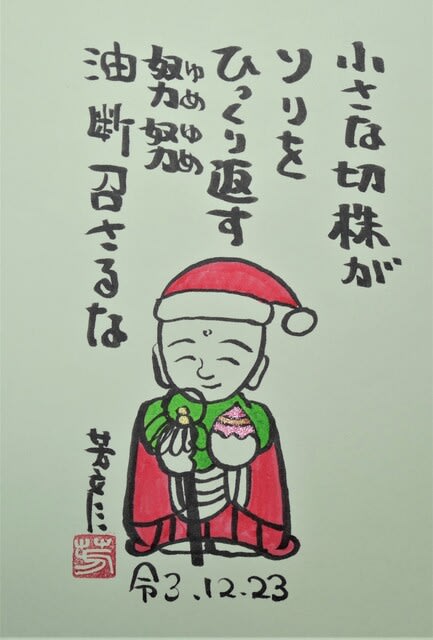 小さな切株が
ソリを
ひっくり返す
努努
ゆめゆめ
油断召さるな
令3.12.23